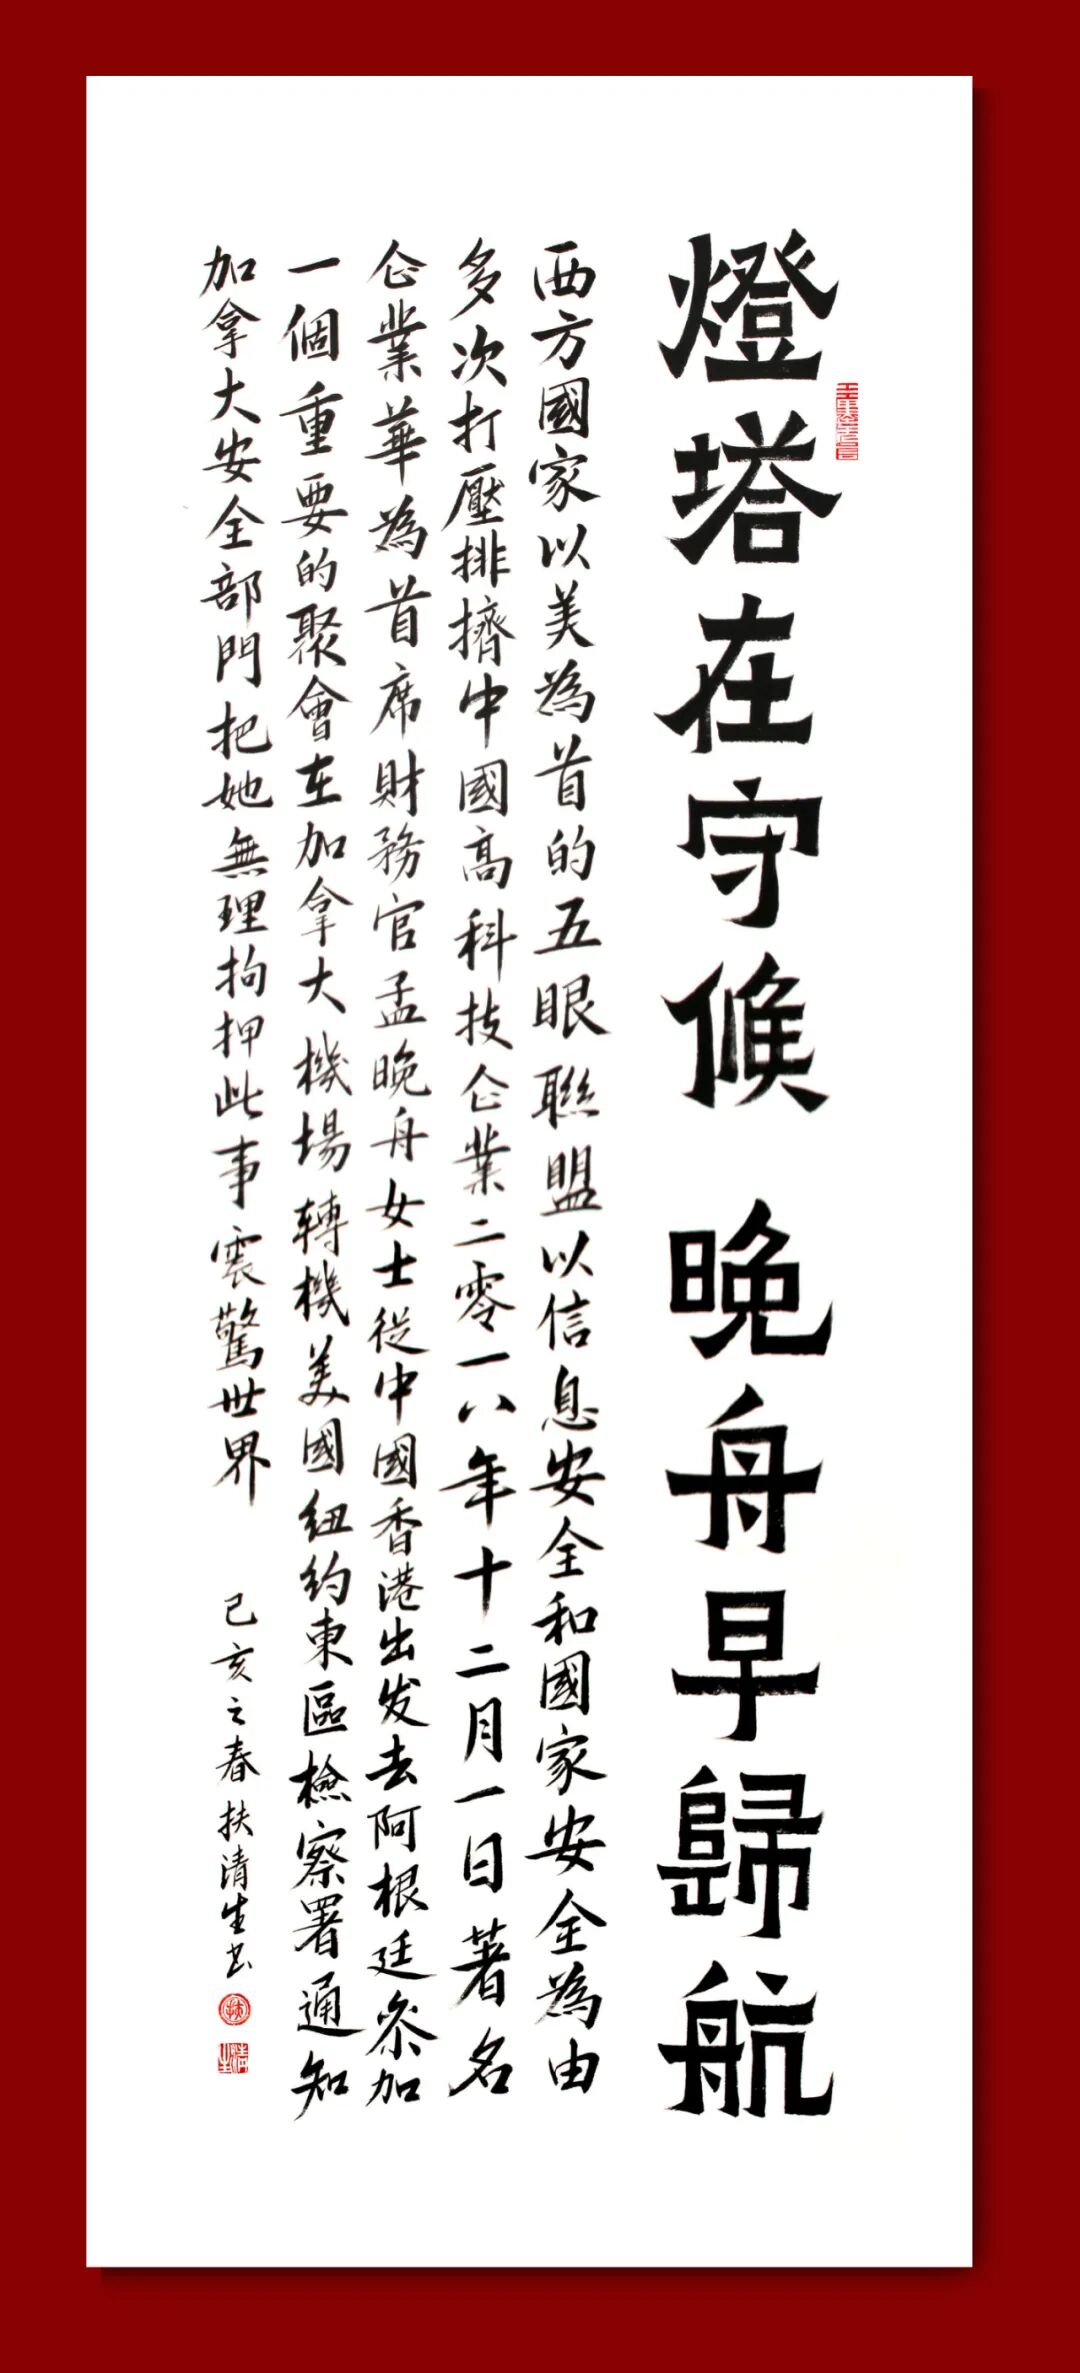 燈塔在守候 晚舟早歸航
西方國家以美為首的五眼聯盟以信息安全和國家安全為由
多次打壓排擠中國高科技企業二零一八年十二月一日著名
企業華為首席財務官孟晚舟女士從中國香港出发去阿根廷參加
一個重要的聚會在加拿大機場轉機美國紐约東區檢察署通知
加拿大安全部門把她無理拘押此事震驚世界
己亥之春扶清生书